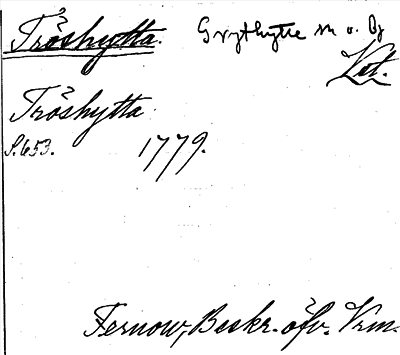 Tröshyttan. Grythytte sn o. bg
Lit.
Tröshytta
S. 653. 1779.
Fernow, Beskr. öfv. Vrm.